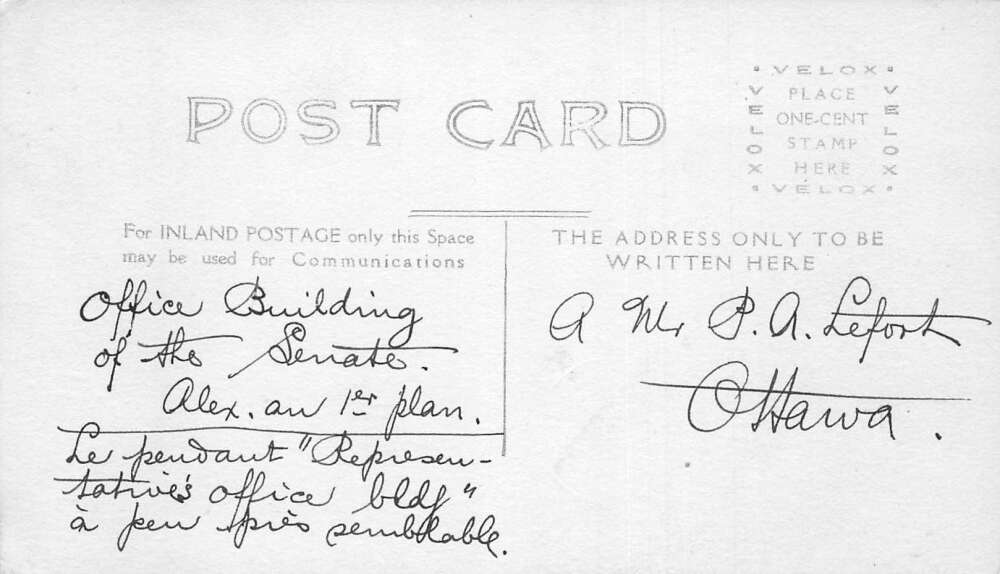 POST CARD
VELOX
VELOX
PLACE
ONE-CENT
STAMP
HERE
VELOX
VELOX
For INLAND POSTAGE only this Space
may be used for Communications
THE ADDRESS ONLY TO BE
WRITTEN HERE
Office Building
of the Senate.
Alex. au 1er plan.
Le pendant "Represen-
tative's office bldg"
à peu près semblable.
A Mr P. A. Lefort
Ottawa.